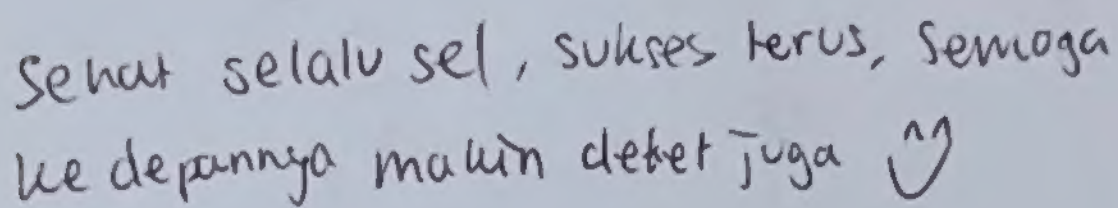 Sehat selalu sel, sukses terus, semoga
ke depannya makin deket juga